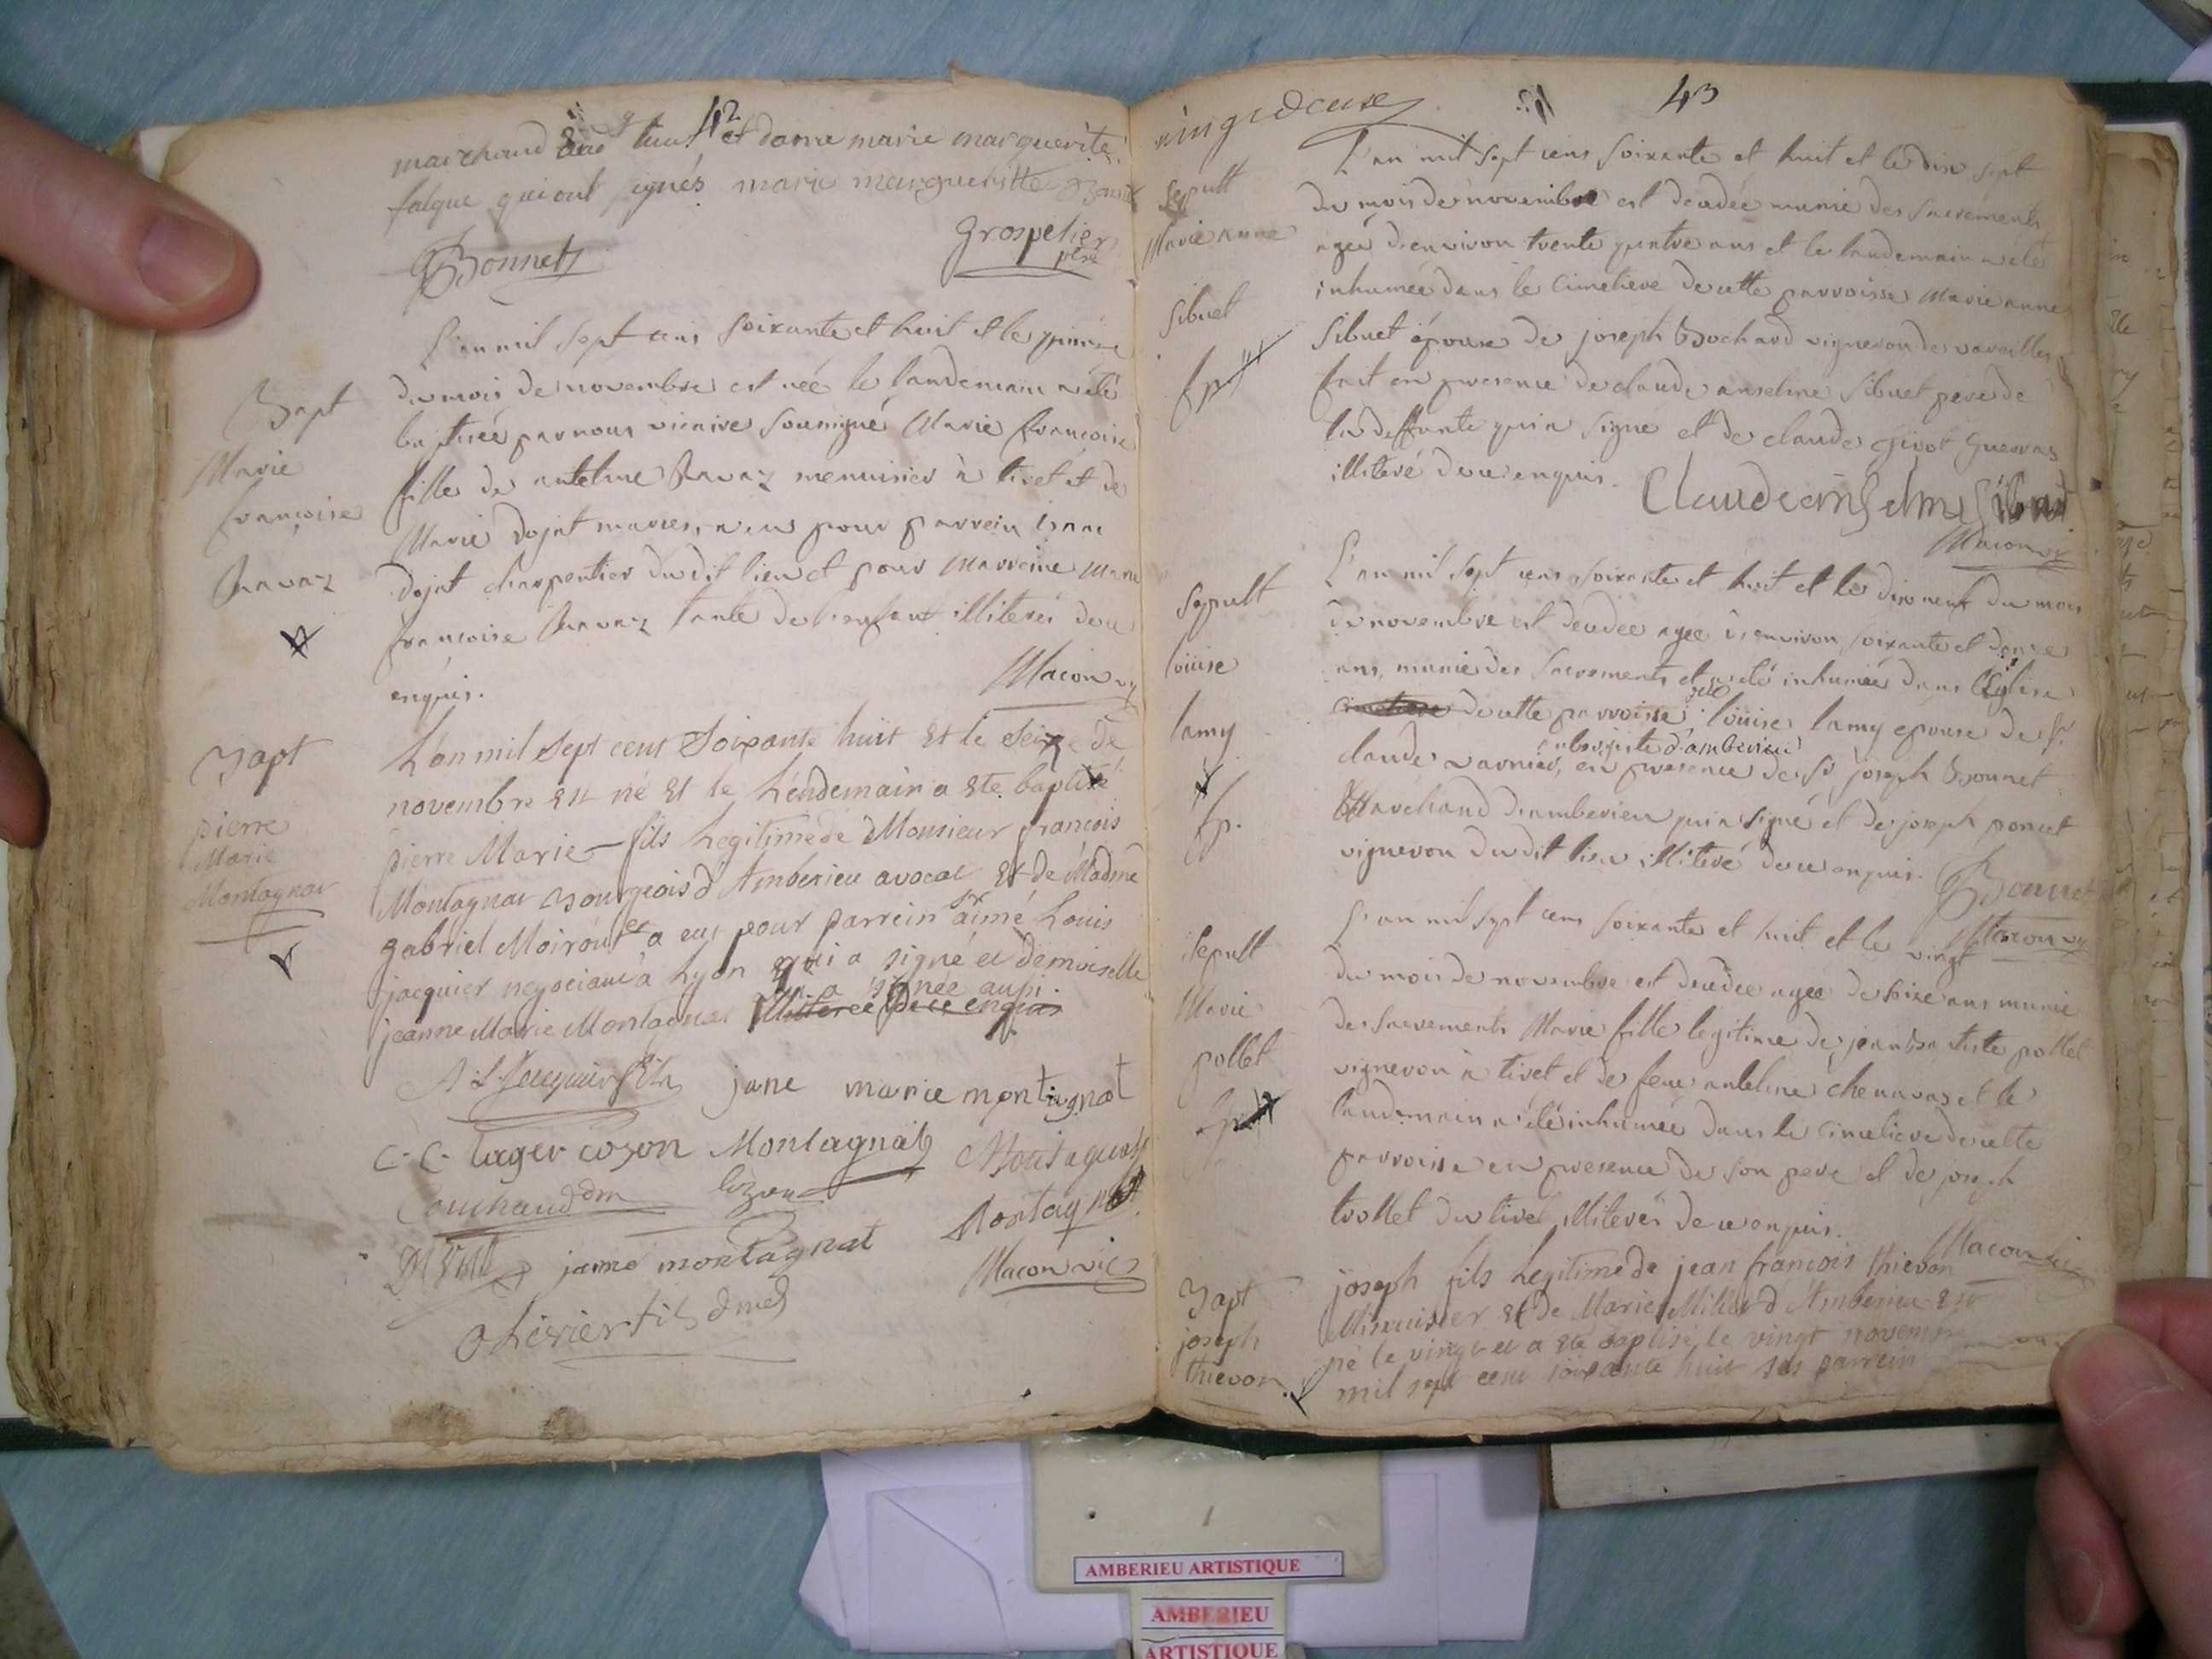 42
marchand dud lieu et dame marie marguerite
falque qui ont signés marie margueritte
Bonnet
grospelier
père
Bapt
Marie
françoise
Ravaz
L'an mil sept cens soixante et huit et le quinze
du mois de novembre est née le landemain a été
baptisée par nous vicaire soussigné Marie françoise
fille de antelme Ravaz menuisier à tiret et de
Marie dojat mariés, a eu pour parrein isaac
dojat charpentier dudit lieu et pour marreine marie
françoise Ravaz tante de l'enfant illiterés de ce
enquis.
Macon vic
Bapt
pierre
Marie
Montagnat
L'an mil sept cent soixante huit et le seize de
novembre est né et le lendemain a ete baptisé
pierre Marie fils legitime de Monsieur françois
Montagnat Bourgeois d'Amberieu avocat et de Madme
gabriel Moiroud et a eu pour parrein sr aimé Louis
jacquier negociant à Lyon qui a signé et demoiselle
qui a signée aussi
jeanne Marie Montagnat illiterée de ce enquis
A. L. Jacquier fils
jane marie montagnat
C. C. tager cozon Montagnat
Montagnat
Couchaud dm
cozon
Montagnat
jaime montagnat
Macon vic
Olivier fils dmed
vingt deux
43
Sepult
Marie anne
Sibuet
L'an mil sept cens soixante et huit et le dix sept
du mois de novembre est decedée munie des sacrements
agée d'environ trente quatre ans et le landemain a été
inhumée dans le cimetiere de cette parroisse Marie anne
Sibuet épouse de joseph Bochard vigneron de vareilles
fait en presence de claude anselme Sibuet pere de
la deffunte qui a signé et de claude
illiteré de ce enquis.
Claude anselme Sibuet
Macon vic
Sepult
loüise
lamy
fp.
L'an mil sept cens soixante et huit et le dix neuf du mois
de novembre est decedée agée d'environ soixante et douze
ans, munie des sacrements et a été inhumée dans l'Eglise
cimetiere de cette parroisse loüise lamy epouse de sr
aubergiste d'amberieu
claude varnier, en presence de sr joseph Bonnet
Marchand d'amberieu qui a signé et de joseph poncet
vigneron dudit lieu illiteré de ce enquis.
Bonnet
Macon vic
Sepult
Marie
pollet
L'an mil sept cens soixante et huit et le vingt
du mois de novembre est decedée agée de seize ans munie
des sacrements Marie fille legitime de jean Baptiste pollet
vigneron à tiret et de feue antelme chenavas et le
landemain a été inhumée dans le cimetiere de cette
parroisse en presence de son pere et de joseph
trollet du tiret illiterés de ce enquis.
Macon vic
Bapt
joseph
thievon
joseph fils legitime de jean françois thievon
Menuisier et de Marie Millet d'Amberieu est
né le vingt et a ete baptisé le vingt novembre
mil sept cent soixante huit son parrein
AMBERIEU ARTISTIQUE
AMBERIEU
ARTISTIQUE